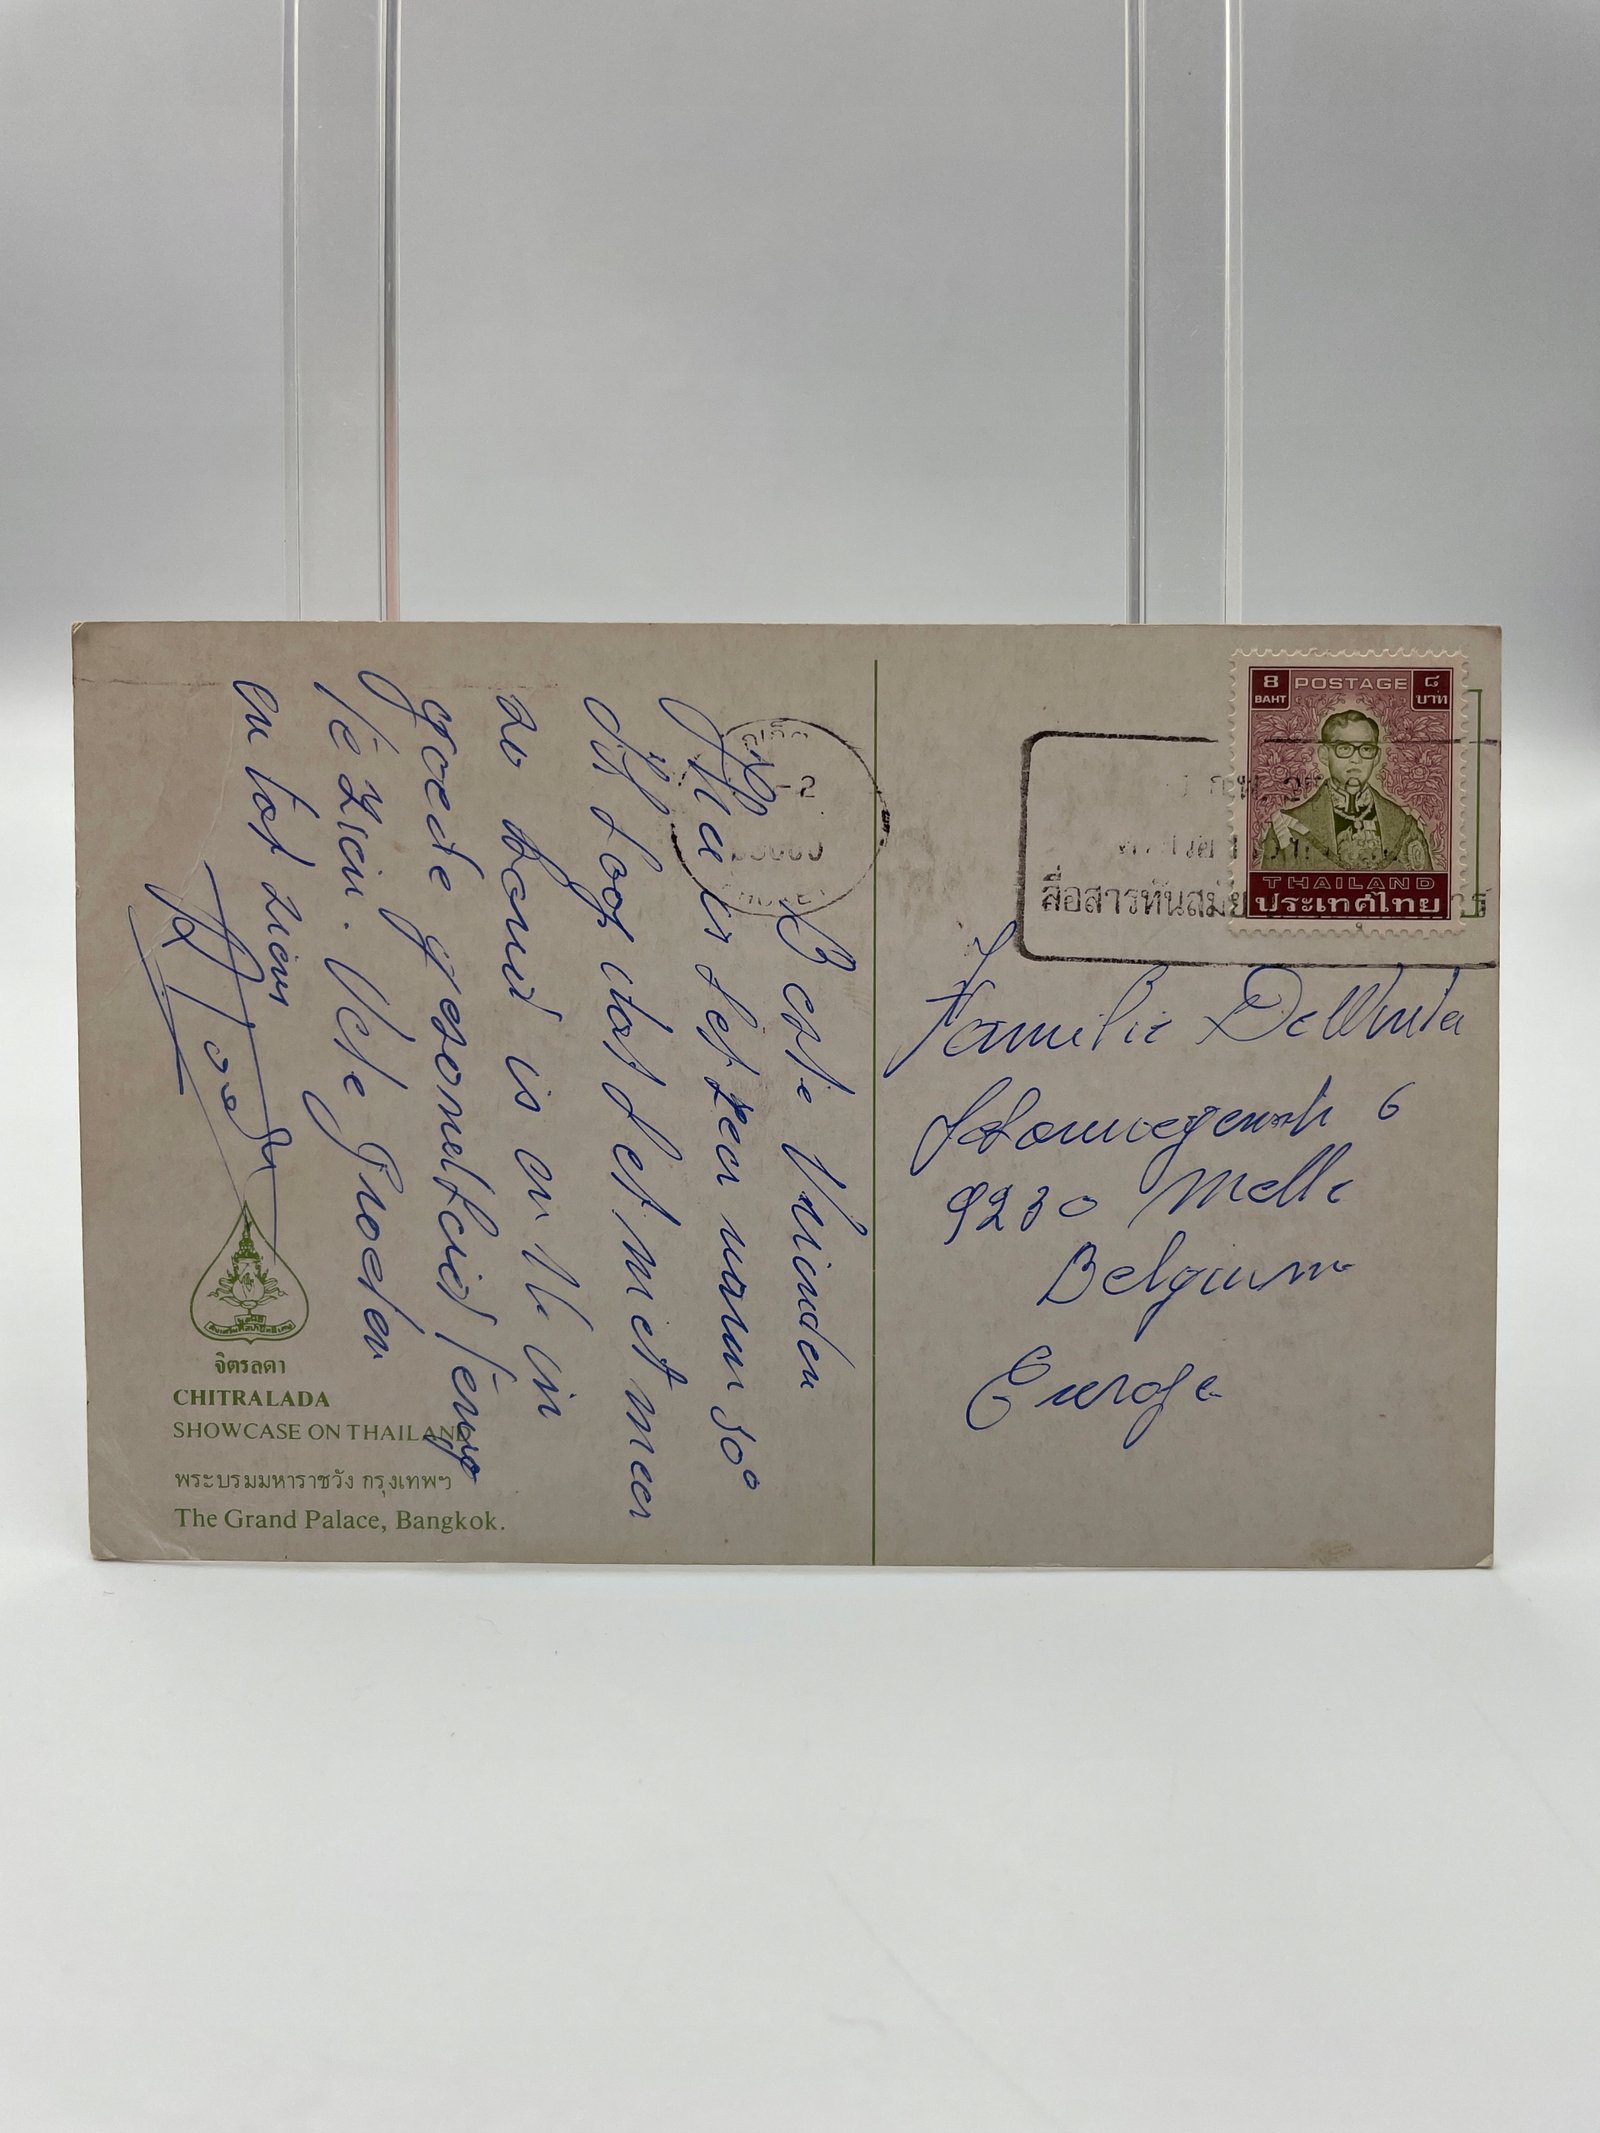 Beste Vrienden
Hier is het zeer warm 30°
Ik hoop dat het niet meer
zo koud is en U in
goede gezondheid terug
te zien. Vele groeten
en tot ziens
จิตรลดา
CHITRALADA
SHOWCASE ON THAILAND
พระบรมมหาราชวัง กรุงเทพฯ
The Grand Palace, Bangkok.
ภูเก็ต
-2
PHUKET
8 POSTAGE ๘
BAHT บาท
THAILAND
ประเทศไทย
สื่อสารทันสมัย
Familie
6
9230 Melle
Belgium
Europe